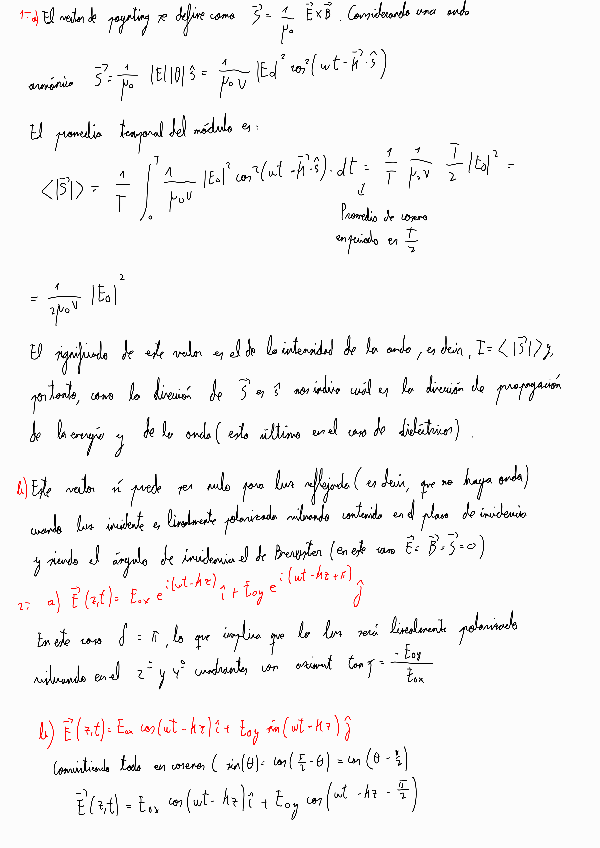 1- a) El vector de poynting se define como $\vec{S} = \frac{1}{\mu_0} \vec{E} \times \vec{B}$. Considerando una onda
armónica $\vec{S} = \frac{1}{\mu_0} |E||B| \hat{s} = \frac{1}{\mu_0 v} |E_0|^2 \cos^2(\omega t - \vec{k} \cdot \hat{s})$
El promedio temporal del módulo es:
$\langle |\vec{S}| \rangle = \frac{1}{T} \int_0^T \frac{1}{\mu_0 v} |E_0|^2 \cos^2(\omega t - \vec{k} \cdot \hat{s}) \cdot dt = \frac{1}{T} \frac{1}{\mu_0 v} \frac{T}{2} |E_0|^2 =$
↓
Promedio de coseno
cuadrado es $\frac{T}{2}$
$= \frac{1}{2\mu_0 v} |E_0|^2$
El significado de este valor es el de la intensidad de la onda, es decir, $I = \langle |\vec{S}| \rangle$ y,
por tanto, como la dirección de $\vec{S}$ es $\hat{s}$ nos indica cuál es la dirección de propagación
de la energía y de la onda (esto último en el caso de dieléctricos).
b) Este vector sí puede ser nulo para luz reflejada (es decir, que no haya onda)
cuando luz incidente es linealmente polarizada vibrando contenida en el plano de incidencia
y siendo el ángulo de incidencia el de Brewster (en este caso $\vec{E} = \vec{B} = \vec{S} = 0$)
2- a) $\vec{E}(z,t) = E_{0x} e^{i(\omega t - kz)} \hat{i} + E_{0y} e^{i(\omega t - kz + \pi)} \hat{j}$
En este caso $\delta = \pi$, lo que implica que la luz será linealmente polarizada
vibrando en el 2º y 4º cuadrantes con azimut $\tan \gamma = \frac{-E_{0y}}{E_{0x}}$
b) $\vec{E}(z,t) = E_{0x} \cos(\omega t - kz) \hat{i} + E_{0y} \sin(\omega t - kz) \hat{j}$
Convirtiendo todo en cosenos ( $\sin(\theta) = \cos(\frac{\pi}{2} - \theta) = \cos(\theta - \frac{\pi}{2})$
$\vec{E}(z,t) = E_{0x} \cos(\omega t - kz) \hat{i} + E_{0y} \cos(\omega t - kz - \frac{\pi}{2})$